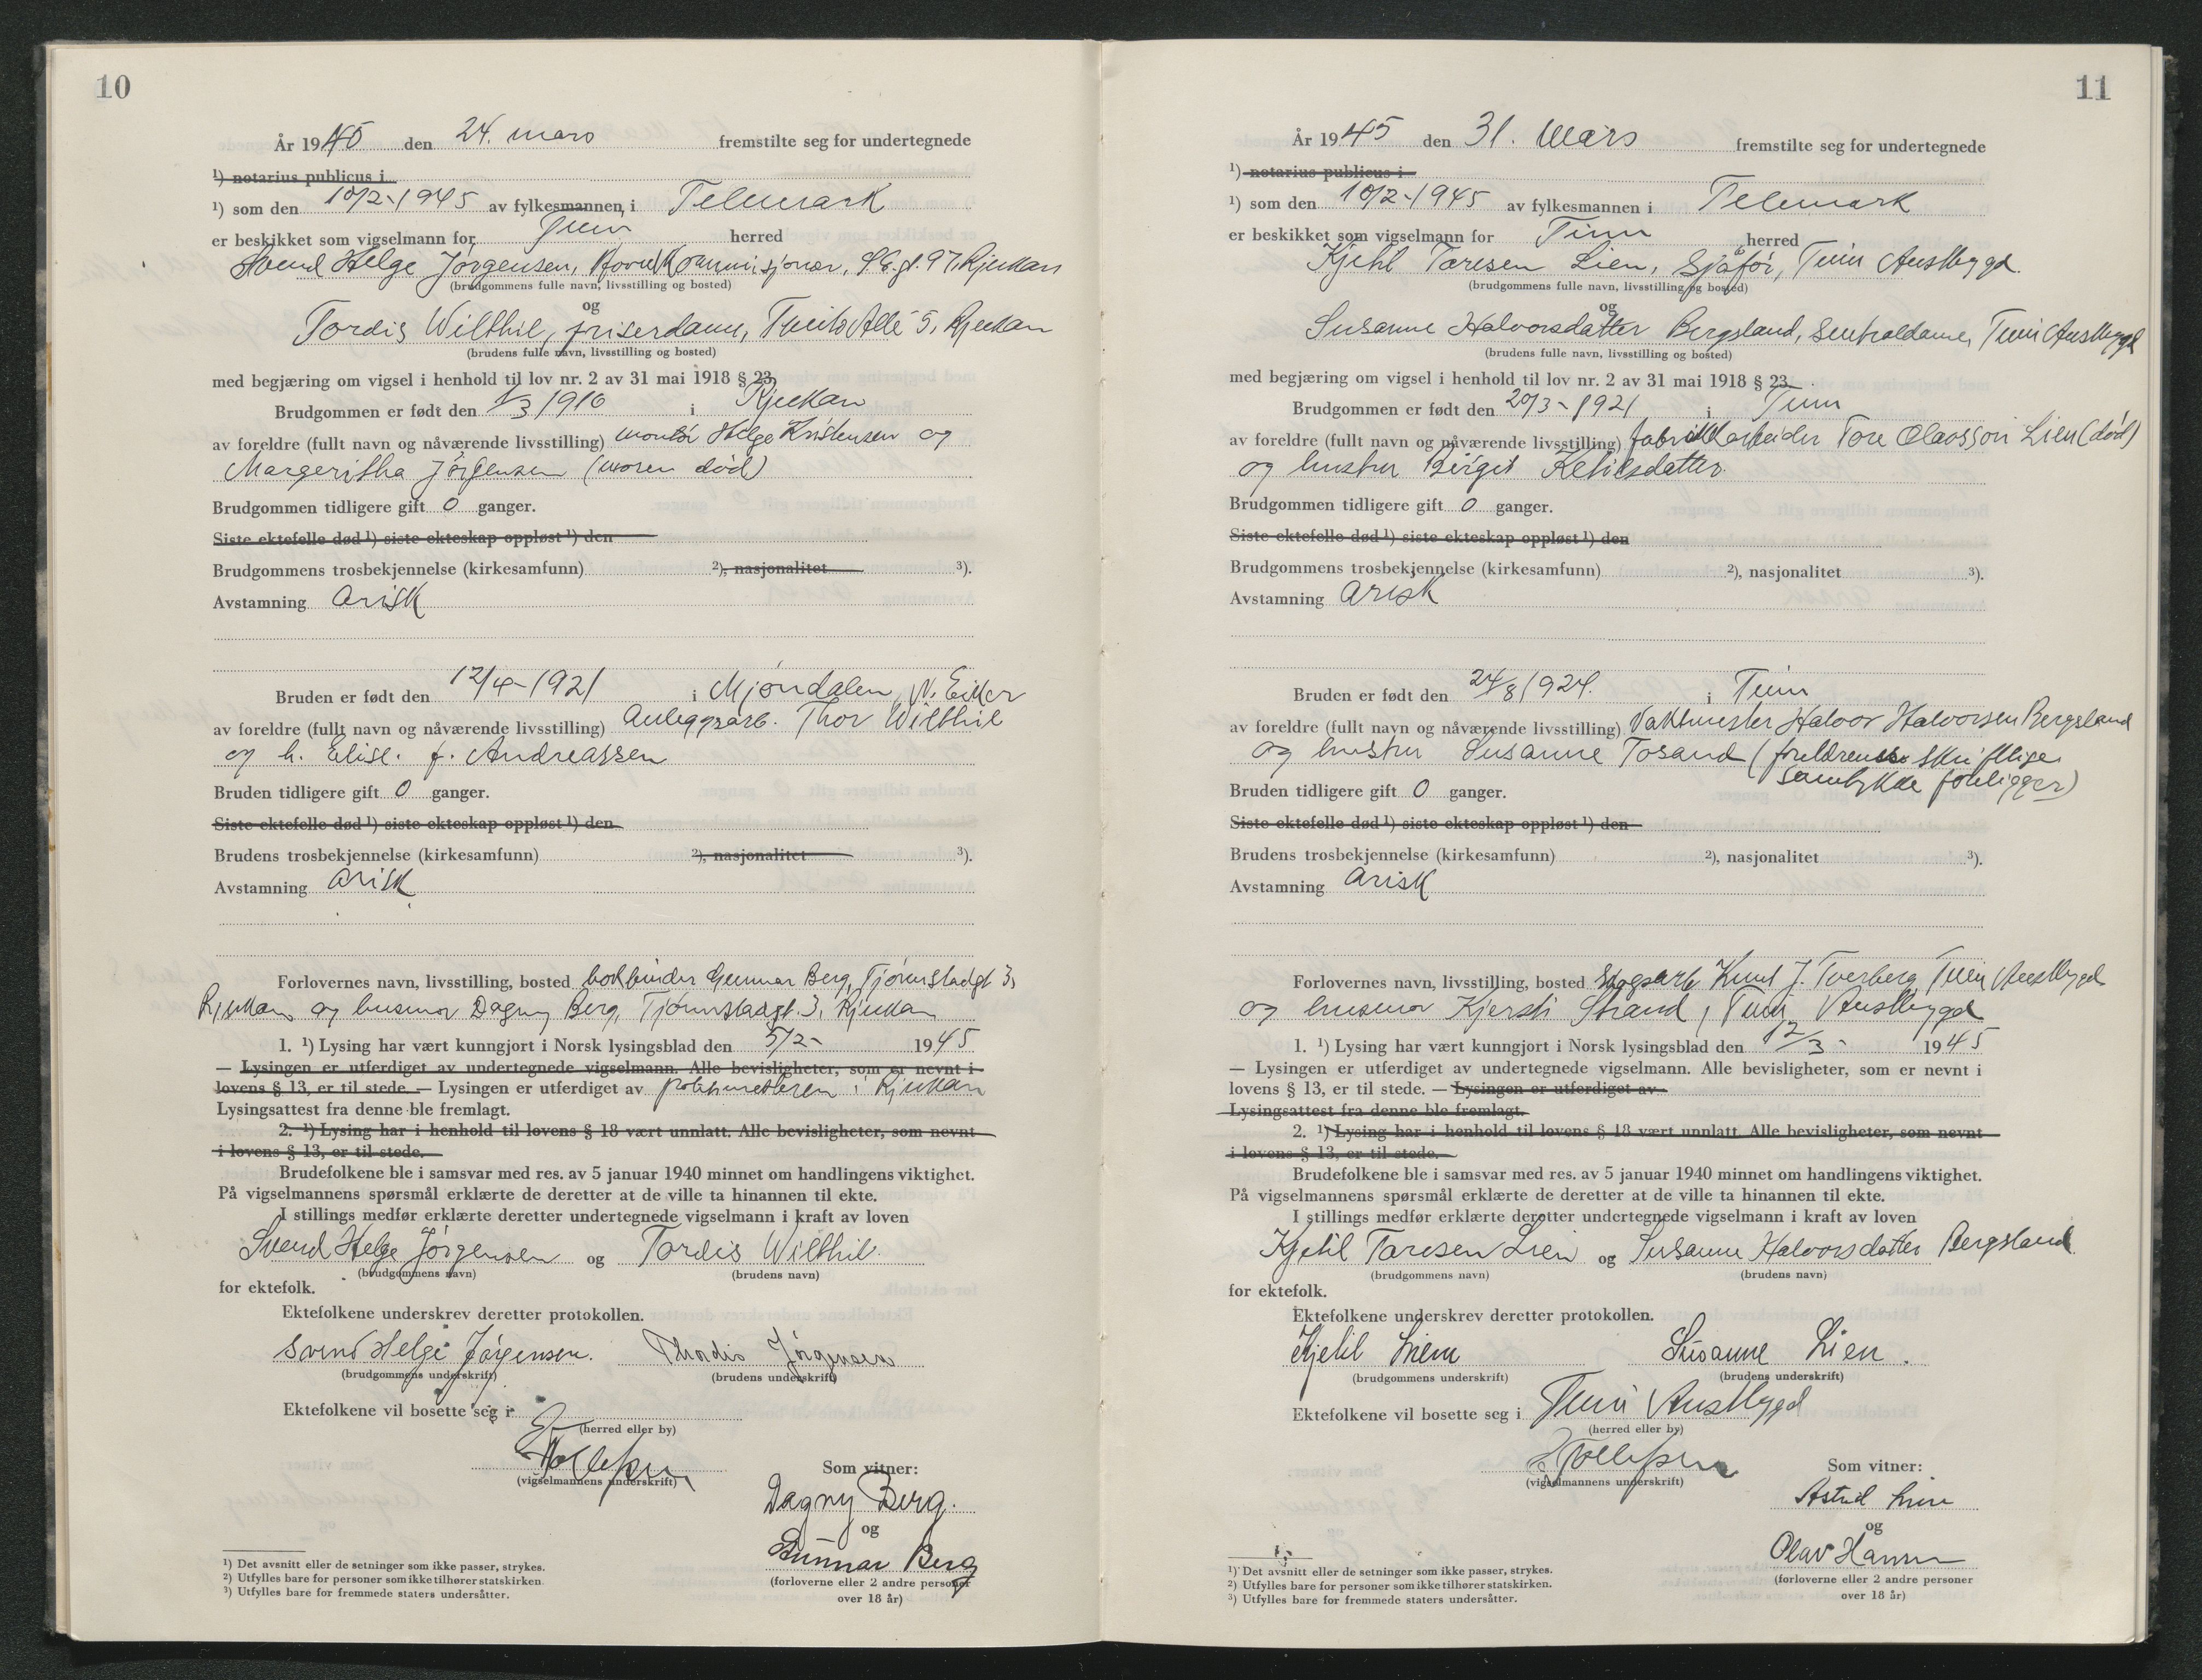 10
År 1945 den 24. mars fremstilte seg for undertegnede
¹) notarius publicus i
¹) som den 10/2-1945 av fylkesmannen i Telemark
er beskikket som vigselmann for Tinn herred
Svend Helge Jørgensen, Kommisjonær, 97, Rjukan
(brudgommens fulle navn, livsstilling og bosted)
og
Tordis Wilthil, friserdame, Allé 5, Rjukan
(brudens fulle navn, livsstilling og bosted)
med begjæring om vigsel i henhold til lov nr. 2 av 31 mai 1918 § 23.
Brudgommen er født den /3 1916 i Rjukan
av foreldre (fullt navn og nåværende livsstilling) montør Helge Kristensen og
Margeritha Jørgensen (moren død)
Brudgommen tidligere gift 0 ganger.
Siste ektefelle død ¹) siste ekteskap oppløst ¹) den
Brudgommens trosbekjennelse (kirkesamfunn) ²), nasjonalitet ³).
Avstamning arisk
Bruden er født den 12/4-1921 i Mjøndalen, N. Eiker
av foreldre (fullt navn og nåværende livsstilling) Anleggsarb. Thor Wilthil
og h. Elise. f. Andreassen
Bruden tidligere gift 0 ganger.
Siste ektefelle død ¹) siste ekteskap oppløst ¹) den
Brudens trosbekjennelse (kirkesamfunn) ²), nasjonalitet ³).
Avstamning arisk
Forlovernes navn, livsstilling, bosted bokbinder Gunnar Berg, Tjørnstadgt 3,
Rjukan og husmor Dagny Berg, Tjørnstadgt. 3, Rjukan
1. ¹) Lysing har vært kunngjort i Norsk lysingsblad den 5/2- 1945
— Lysingen er utferdiget av undertegnede vigselmann. Alle bevisligheter, som er nevnt i
lovens § 13, er til stede. — Lysingen er utferdiget av politimesteren i Rjukan
Lysingsattest fra denne ble fremlagt.
2. ¹) Lysing har i henhold til lovens § 18 vært unnlatt. Alle bevisligheter, som nevnt
i lovens § 13, er til stede.
Brudefolkene ble i samsvar med res. av 5 januar 1940 minnet om handlingens viktighet.
På vigselmannens spørsmål erklærte de deretter at de ville ta hinannen til ekte.
I stillings medfør erklærte deretter undertegnede vigselmann i kraft av loven
Svend Helge Jørgensen og Tordis Wilthil
(brudgommens navn) (brudens navn)
for ektefolk.
Ektefolkene underskrev deretter protokollen.
Svend Helge Jørgensen. Thordis Jørgensen
(brudgommens underskrift) (brudens underskrift)
Ektefolkene vil bosette seg i
(herred eller by)
Tollefsen
(vigselmannens underskrift)
Som vitner:
Dagny Berg.
og
Gunnar Berg
(forloverne eller 2 andre personer
over 18 år)
¹) Det avsnitt eller de setninger som ikke passer, strykes.
²) Utfylles bare for personer som ikke tilhører statskirken.
³) Utfylles bare for fremmede staters undersåtter.
11
År 1945 den 31. Mars fremstilte seg for undertegnede
¹) notarius publicus i
¹) som den 10/2-1945 av fylkesmannen i Telemark
er beskikket som vigselmann for Tinn herred
Kjetil Taresen Lien, sjåfør, Tinn Austbygd
(brudgommens fulle navn, livsstilling og bosted)
og
Susanne Halvorsdatter Bergsland, Sentraldame, Tinn Austbygd
(brudens fulle navn, livsstilling og bosted)
med begjæring om vigsel i henhold til lov nr. 2 av 31 mai 1918 § 23.
Brudgommen er født den 20/3-1921 i Tinn
av foreldre (fullt navn og nåværende livsstilling) fabrikkarbeider Tore Olavsson Lien (død)
og hustru Birgit Ketilsdatter.
Brudgommen tidligere gift 0 ganger.
Siste ektefelle død ¹) siste ekteskap oppløst ¹) den
Brudgommens trosbekjennelse (kirkesamfunn) ²), nasjonalitet ³).
Avstamning arisk
Bruden er født den 24/8 1924. i Tinn
av foreldre (fullt navn og nåværende livsstilling) Vaktmester Halvor Halvorsen Bergsland
og hustru Susanne Tosand (foreldrenes skriftlige
samtykke foreligger)
Bruden tidligere gift 0 ganger.
Siste ektefelle død ¹) siste ekteskap oppløst ¹) den
Brudens trosbekjennelse (kirkesamfunn) ²), nasjonalitet ³).
Avstamning arisk
Forlovernes navn, livsstilling, bosted skogsarb Knut J. Tverberg, Tinn Austbygd
og husmor Kjersti Strand, Tinn Austbygd
1. ¹) Lysing har vært kunngjort i Norsk lysingsblad den 12/3- 1945
— Lysingen er utferdiget av undertegnede vigselmann. Alle bevisligheter, som er nevnt i
lovens § 13, er til stede. — Lysingen er utferdiget av
Lysingsattest fra denne ble fremlagt.
2. ¹) Lysing har i henhold til lovens § 18 vært unnlatt. Alle bevisligheter, som nevnt
i lovens § 13, er til stede.
Brudefolkene ble i samsvar med res. av 5 januar 1940 minnet om handlingens viktighet.
På vigselmannens spørsmål erklærte de deretter at de ville ta hinannen til ekte.
I stillings medfør erklærte deretter undertegnede vigselmann i kraft av loven
Kjetil Taresen Lien og Susanne Halvorsdatter Bergsland
(brudgommens navn) (brudens navn)
for ektefolk.
Ektefolkene underskrev deretter protokollen.
Kjetil Lien Susanne Lien.
(brudgommens underskrift) (brudens underskrift)
Ektefolkene vil bosette seg i Tinn Austbygd
(herred eller by)
Tollefsen
(vigselmannens underskrift)
Som vitner:
Astrid Lien
og
Olav Hansen
(forloverne eller 2 andre personer
over 18 år)
¹) Det avsnitt eller de setninger som ikke passer, strykes.
²) Utfylles bare for personer som ikke tilhører statskirken.
³) Utfylles bare for fremmede staters undersåtter.